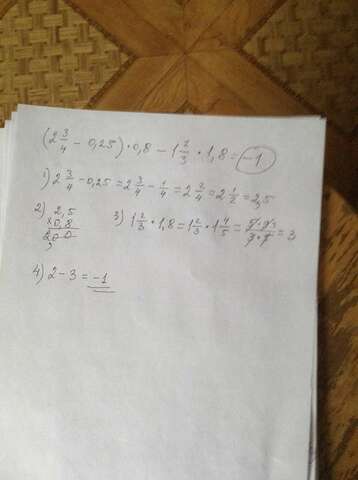 (2 3/4 - 0,25) · 0,8 - 1 2/3 · 1,8 = -1
1) 2 3/4 - 0,25 = 2 3/4 - 1/4 = 2 2/4 = 2 1/2 = 2,5
2) 2,5
× 0,8
2,00
3) 1 2/3 · 1,8 = 1 2/3 · 1 4/5 = 5·9 3/3·5 = 3
4) 2 - 3 = -1